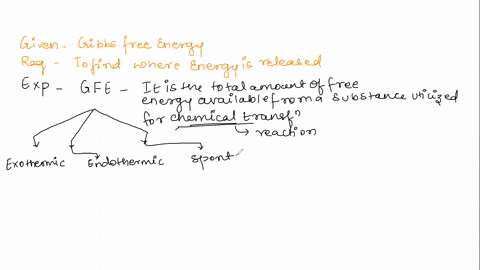 Given - Gibbs free Energy
Req - To find where Energy is released
Exp - GFE - It is the total amount of free
energy available from a substance utilized
for chemical transfⁿ
reaction
Exothermic Endothermic spont